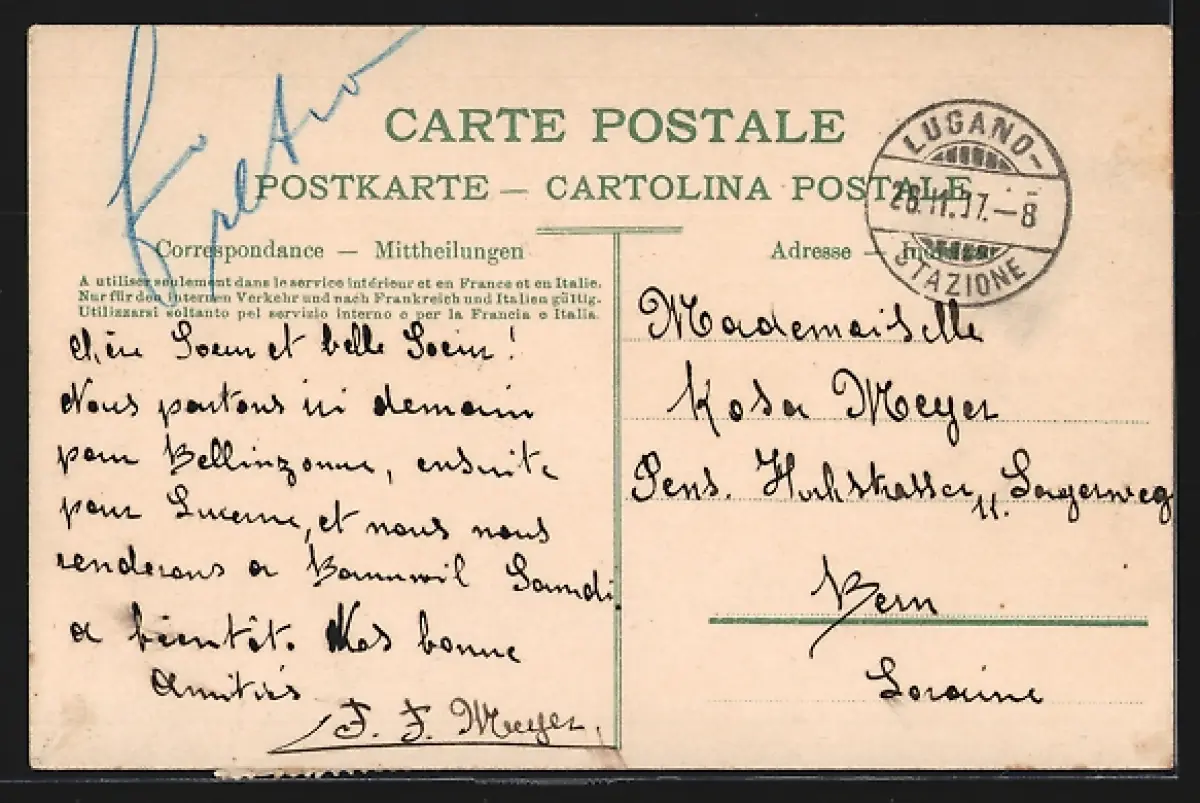 CARTE POSTALE
POSTKARTE — CARTOLINA POSTALE
Correspondance — Mittheilungen
A utiliser seulement dans le service intérieur et en France et en Italie.
Nur für den internen Verkehr und nach Frankreich und Italien gültig.
Utilizzarsi soltanto pel servizio interno e per la Francia e Italia.
chère Soeur et belle Soeur!
Nous partons ici demain
pour Bellinzonne, ensuite
pour Lucerne, et nous nous
renderons a Bannwil Samdi
a bientôt. Nos bonne
Amitiés
F. F. Meyer.
LUGANO-
26.11.07.—8
STAZIONE
Adresse —
Mademoiselle
Rosa Meyer
Pens. Hochstrasser, 11. Lagerweg
Bern
Loraine